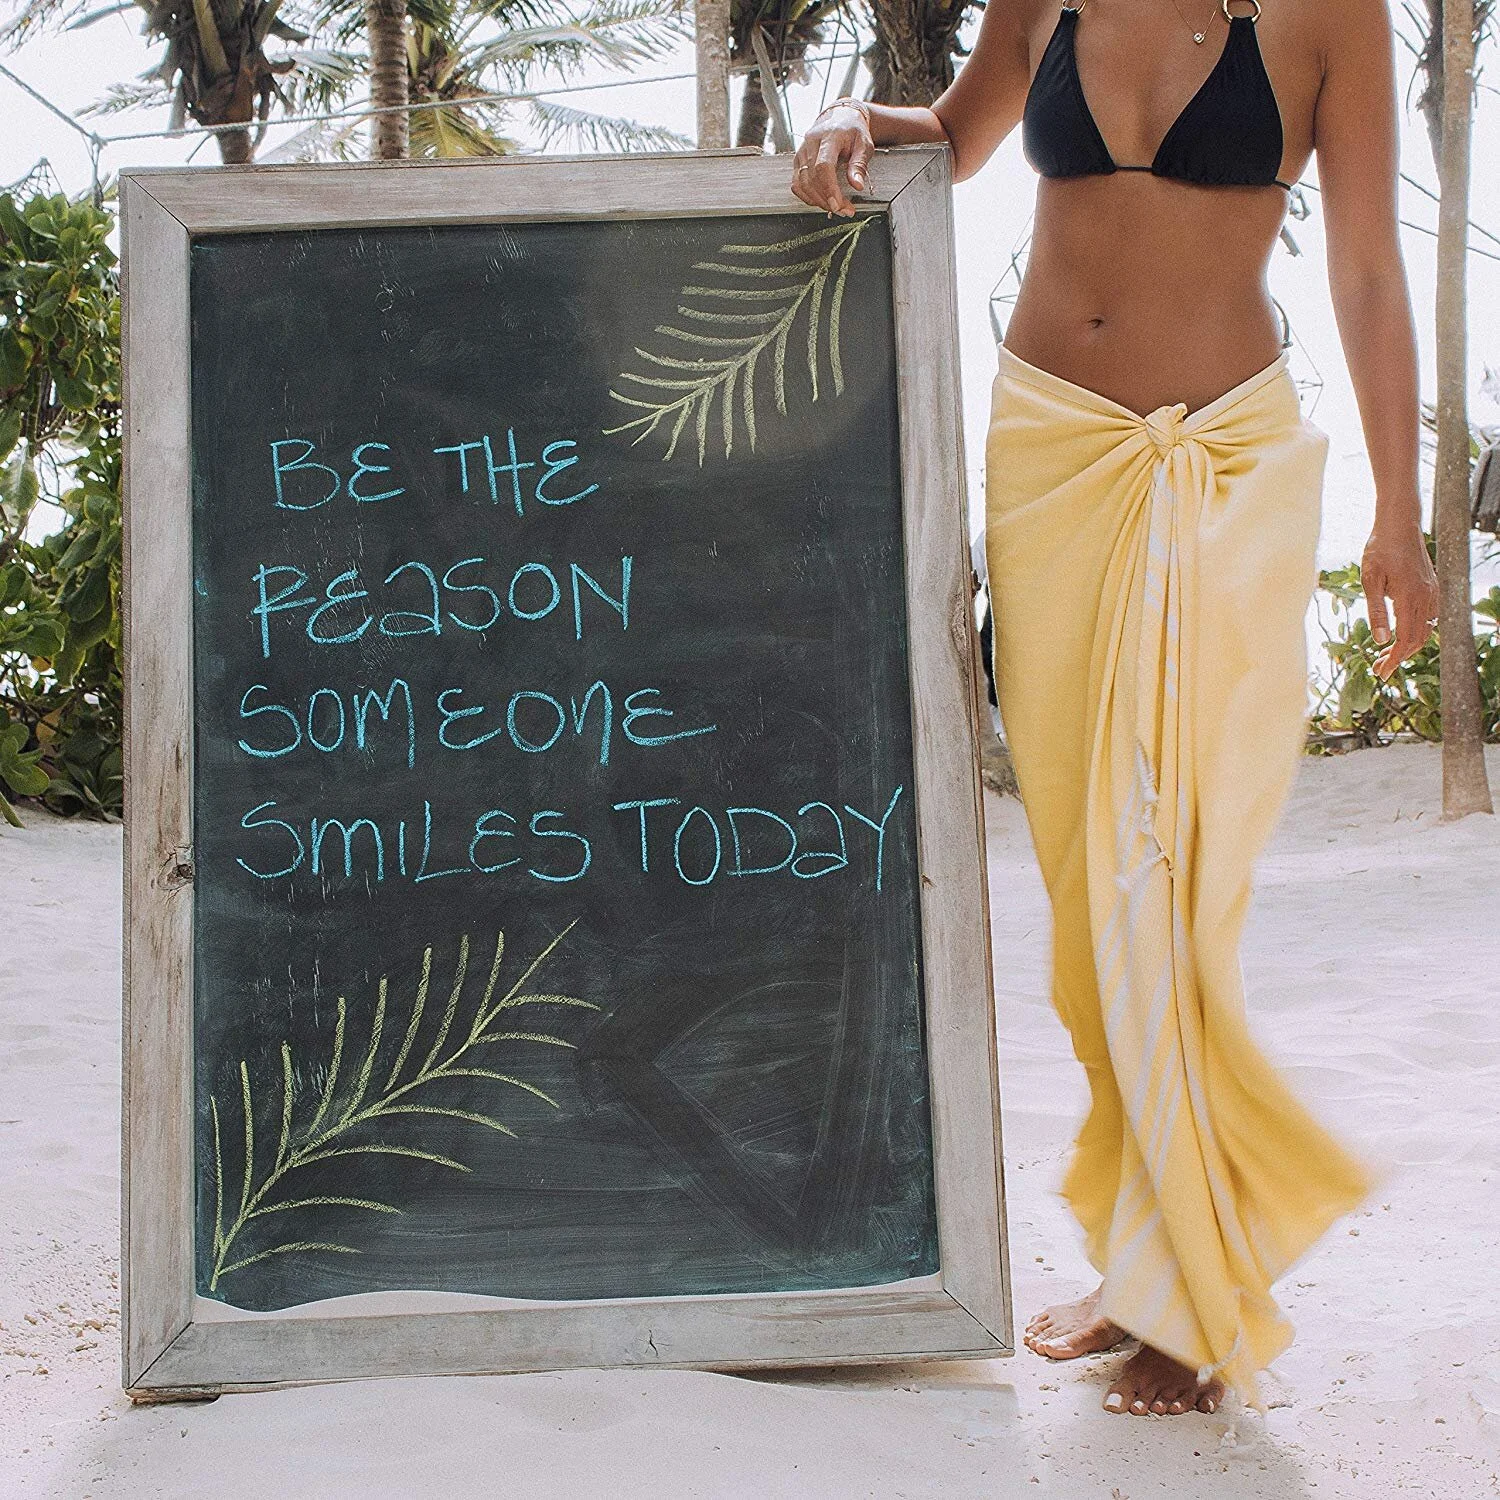 BE THE
REaSON
SOMEONE
SMILES TODaY